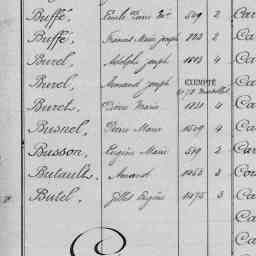 Buffé, Emile Pierre Me 549 2 Ca
Buffé, Francois Marie Joseph 883 2 Ca
Burel, Adolphe Joseph 1603 4 Ca
Burel, Armand Joseph COMPTÉ Ca
Buret, Pierre Marie 1831 4 Ca
Busnel, Pierre Marie 1509 4 Ca
Busson, Eugène Marie 519 2 Car
Butault, Amand 1053 3 Con
Butel, Gilles Eugène 1075 3 Ca
Ca
Ca